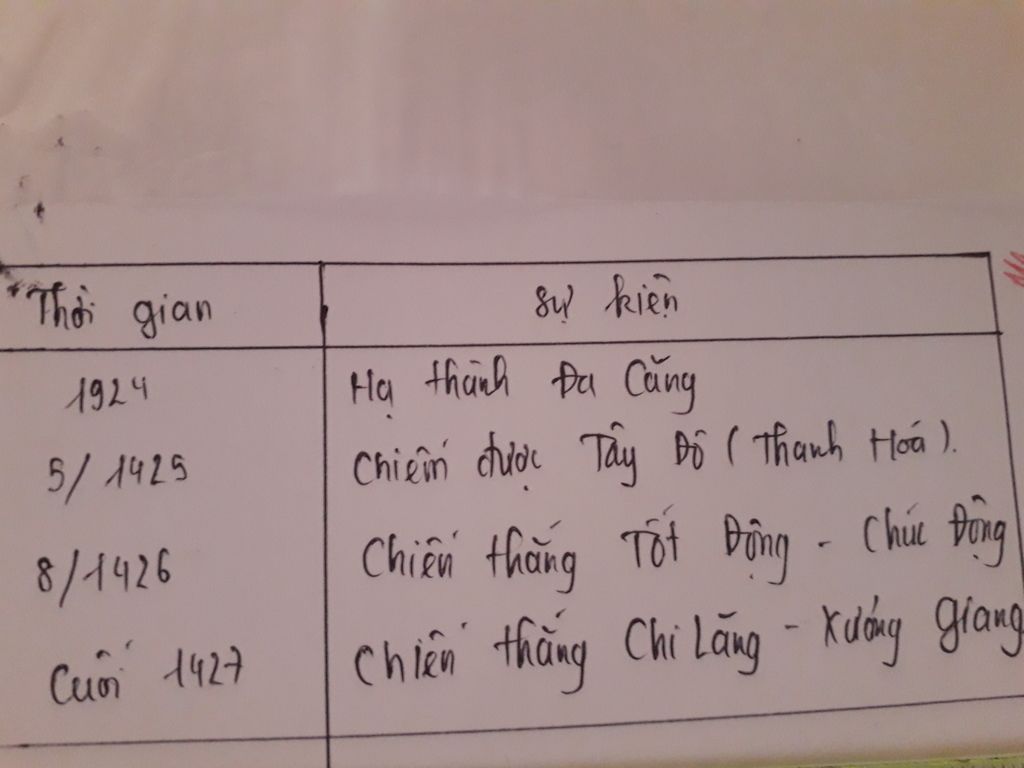 Thời gian Sự kiện
1924 Hạ thành Đa Căng
5/1425 Chiếm được Tây Đô (Thanh Hoá).
8/1426 Chiến thắng Tốt Động - Chúc Động
Cuối 1427 Chiến thắng Chi Lăng - Xương Giang